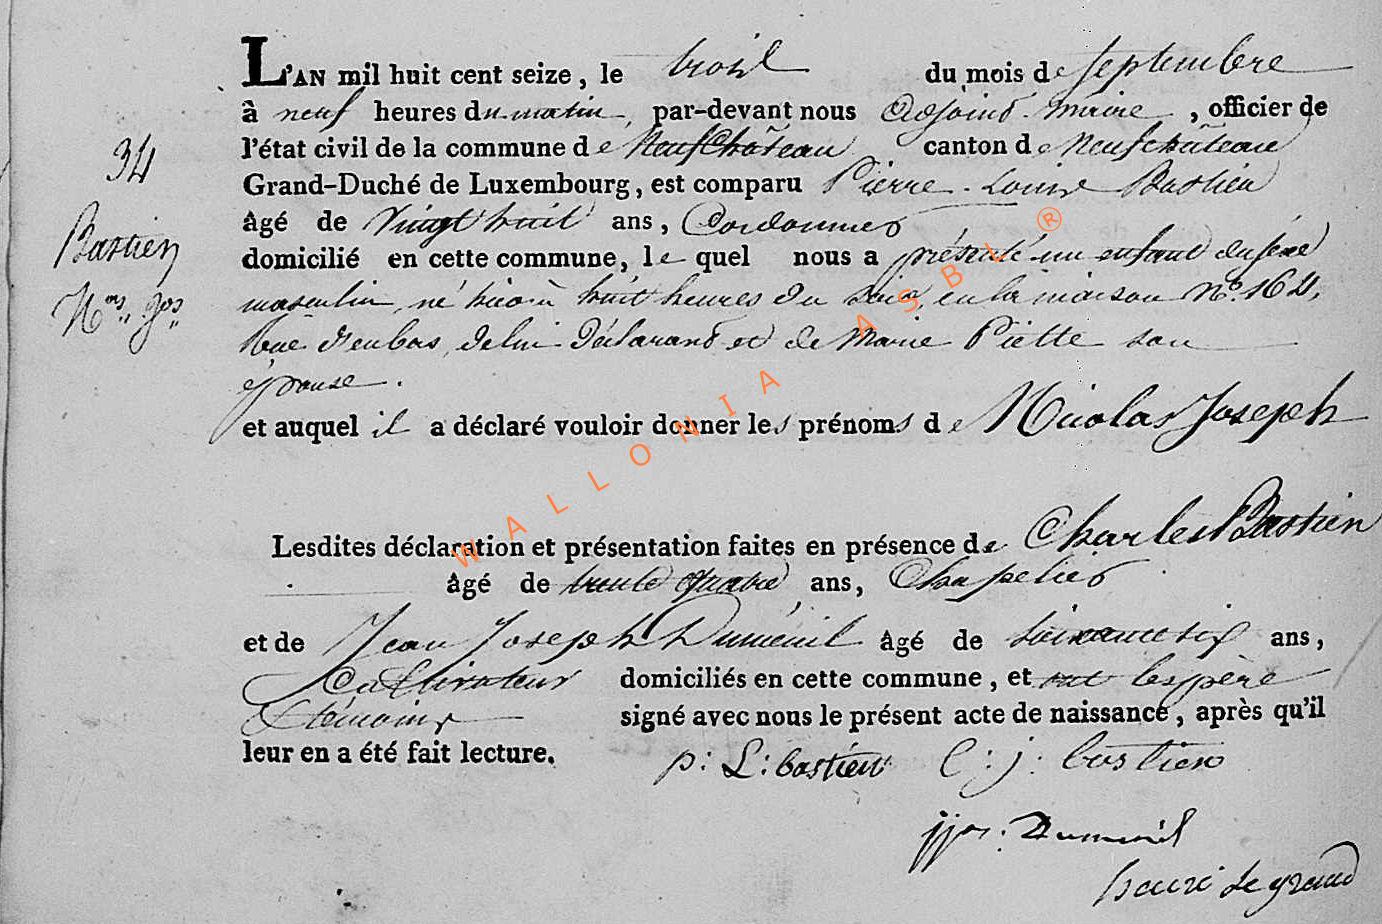 L'AN mil huit cent seize, le trois du mois de septembre
à neuf heures du matin, par-devant nous adjoint-maire, officier de
34
l'état civil de la commune de Neufchâteau canton de Neufchâteau
Grand-Duché de Luxembourg, est comparu Pierre-Louis Bastien
âgé de vingt huit ans, Cordonnier
Bastien
domicilié en cette commune, le quel nous a présenté un enfant du sexe
Nas Jos
masculin, né hier à huit heures du soir, en la maison No. 164,
Rue d'enbas, de lui Déclarant et de Marie Piette son
épouse.
et auquel il a déclaré vouloir donner les prénoms de Nicolas Joseph
Lesdites déclaration et présentation faites en présence de Charles Bastien
âgé de trente quatre ans, Chapelier
et de Jean Joseph Duménil âgé de soixante six ans,
Cultivateur domiciliés en cette commune, et ont les père
et témoins signé avec nous le présent acte de naissance, après qu'il
leur en a été fait lecture.
p: L: bastien C: j: bastien
jjos. Dumenil
henri Legrand
WALLONIA ASBL ®